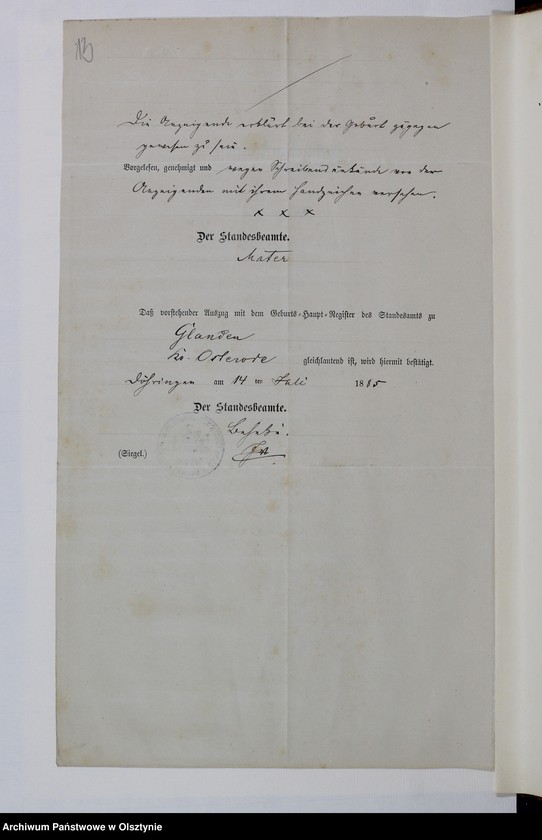 13
Die Anzeigende erklärt bei der Geburt zugegen
gewesen zu sein.
Vorgelesen, genehmigt und wegen Schreibensunkunde von der
Anzeigenden mit ihrem Handzeichen versehen.
x x x
Der Standesbeamte.
Mater
Daß vorstehender Auszug mit dem Geburts-Haupt-Register des Standesamts zu
Glanden
Kr. Osterode gleichlautend ist, wird hiermit bestätigt.
Döhringen am 14 ten Juli 1885
Der Standesbeamte.
(Siegel.)
Archiwum Państwowe w Olsztynie